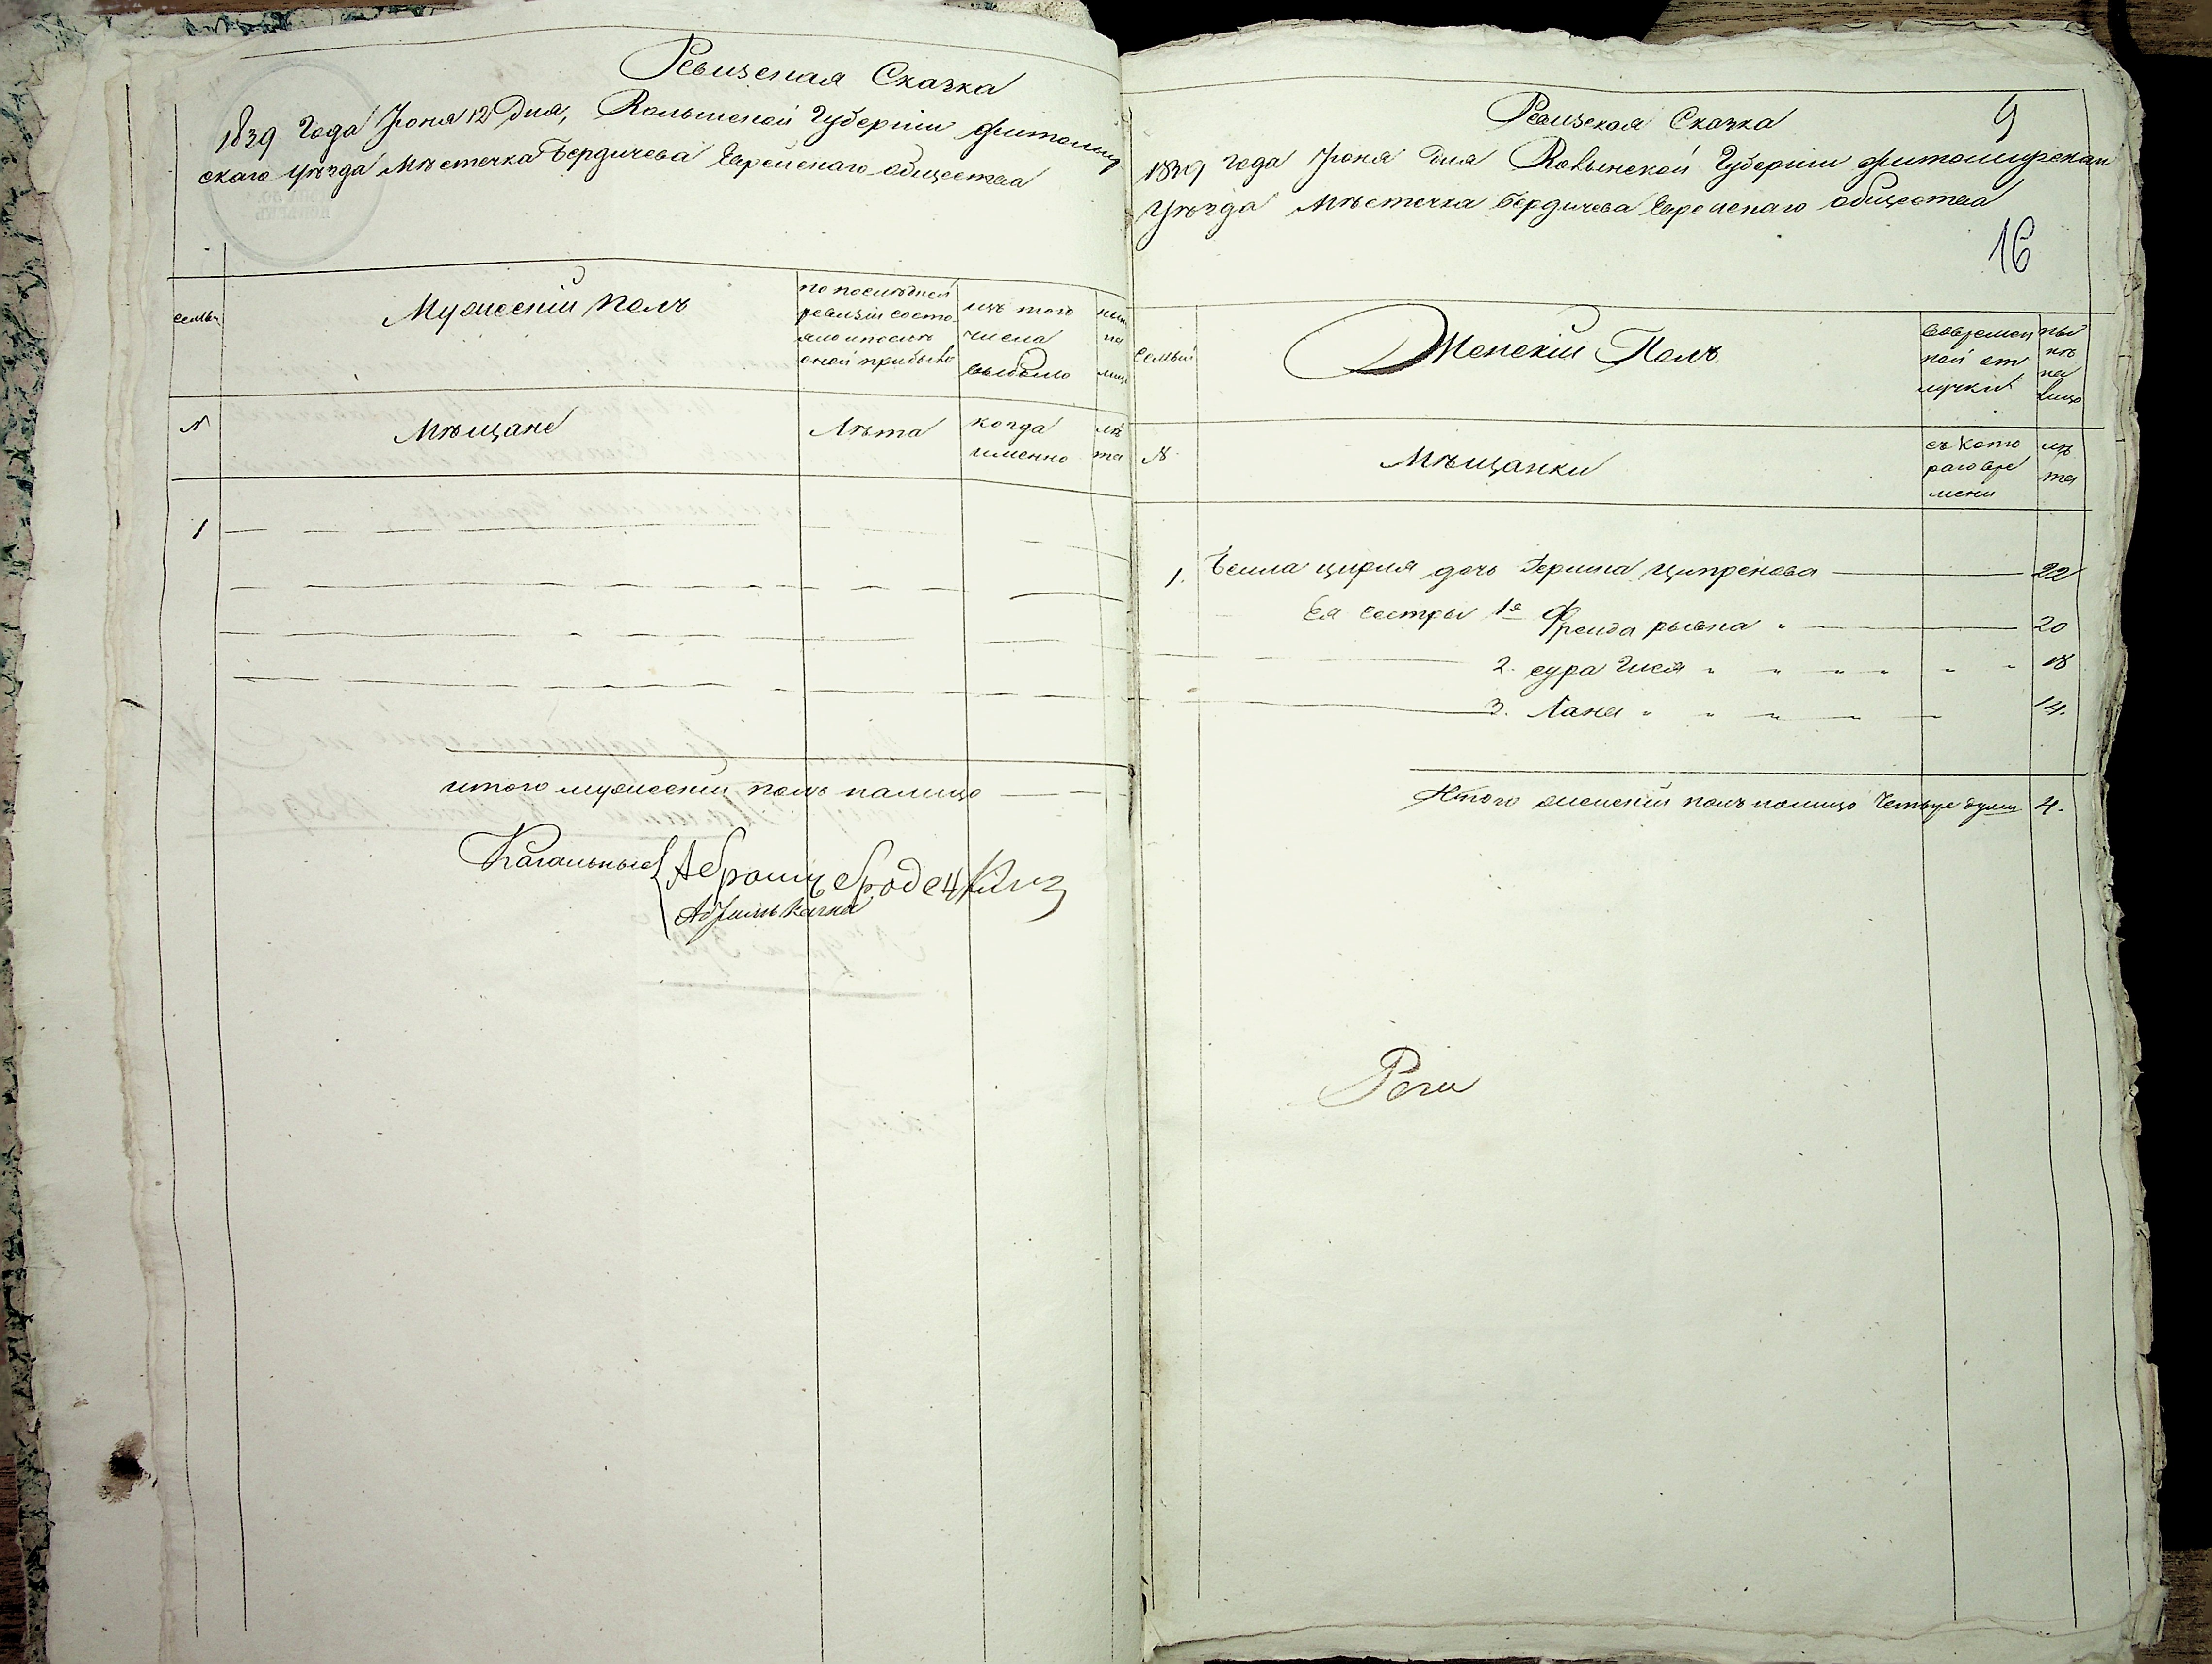 Ревизская Сказка
1839 года Іюня 12 Дня, Волынской Губерніи Житомир
скаго уѣзда Мѣстечка Бердичева Еврейскаго общества
семьи
Мужескій Полъ
по послѣдней
ревизіи состо
яло и послѣ
оной прибыло
изъ того
числа
выбыло
нын
на
лицо
№
Мѣщане
Лѣта
когда
именно
лѣ
та
1
итого мужескій полъ налицо
Кагальные
Абрамъ Бродецкій
Ревизская Сказка
9
1839 года Іюня Дня Волынской Губерніи Житомирскаго
Уѣзда Мѣстечка Бердичева Еврейскаго общества
16
семьи
Женскій Полъ
во времен
ной от
лучки
ны
нѣ
на
лицо
№
Мѣщанки
съ кото
раго вре
мени
лѣ
та
1. Бейла цирля дочь Герша Ципренова 22
Ея сестры 1я Фрейда рывка 20
2. сура Гися 18
3. Хана 14.
Итого женскій полъ налицо Четыре души 4.